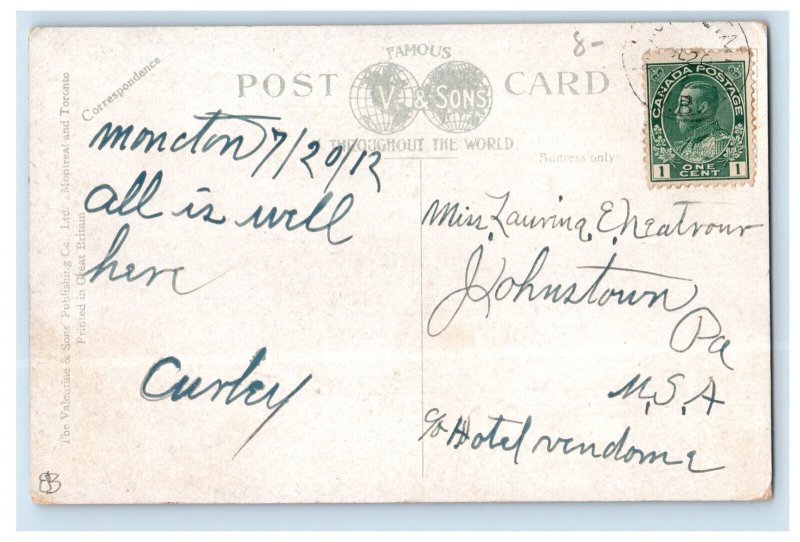 FAMOUS
POST CARD
V. & SONS
THROUGHOUT THE WORLD.
Correspondence
Address only
The Valentine & Sons' Publishing Co. Ltd., Montreal and Toronto
Printed in Great Britain
8-
CANADA POSTAGE
1 ONE CENT 1
Moncton 7/20/12
All is well
here
Curley
Miss. Laurina. E. Neatrour
Johnstown
Pa
U.S.A
c/o Hotel Vendome
EB